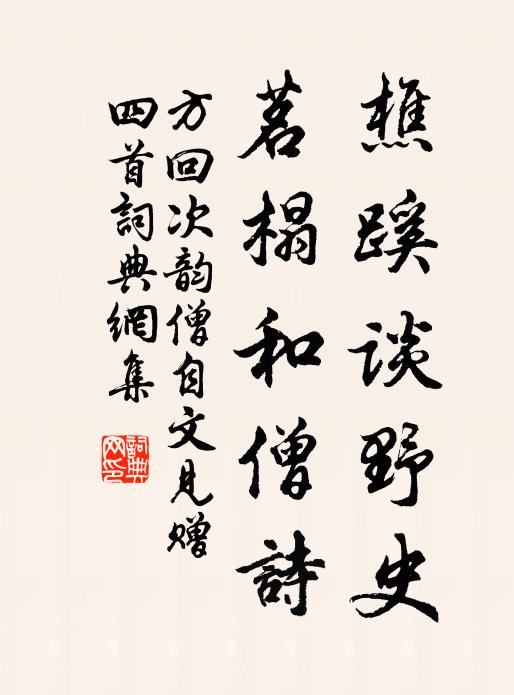 樵蹊谈野史
茗榻和僧詩
方回次韵僧自文見赠
四首詞典網集
詞典
网印